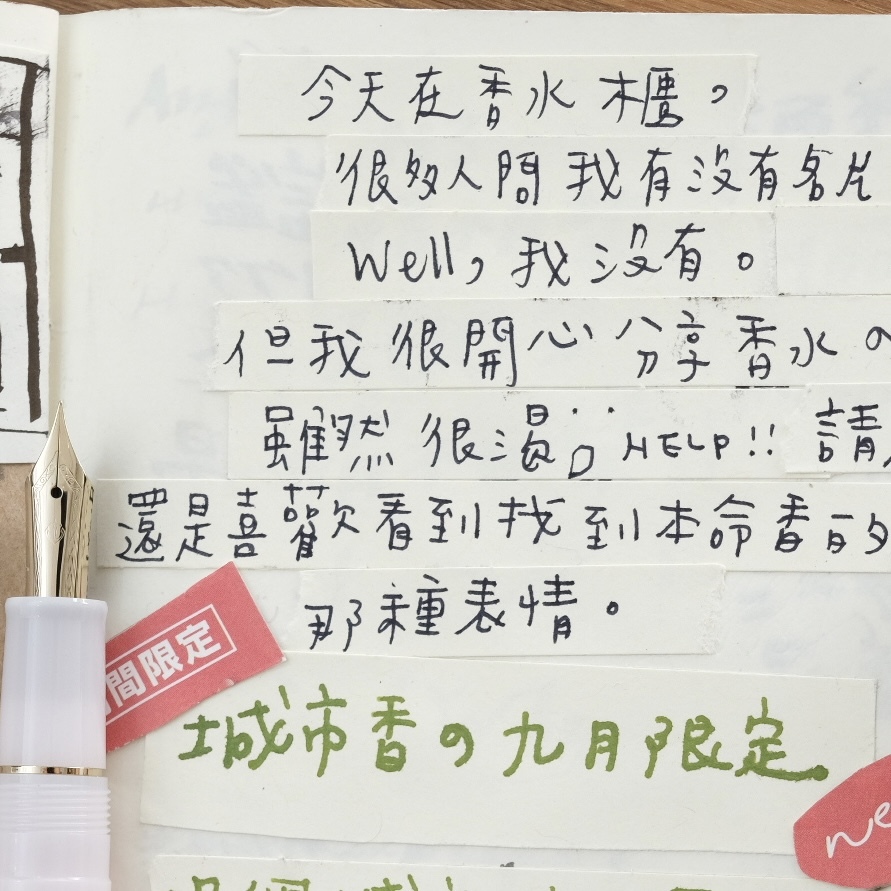 今天在香水櫃，
很多人問我有沒有名片
Well，我沒有。
但我很開心分享香水の
雖然很濕;; HELP!! 請
還是喜歡看到找到本命香的
那種表情。
間限定
城市香の九月限定.
ne